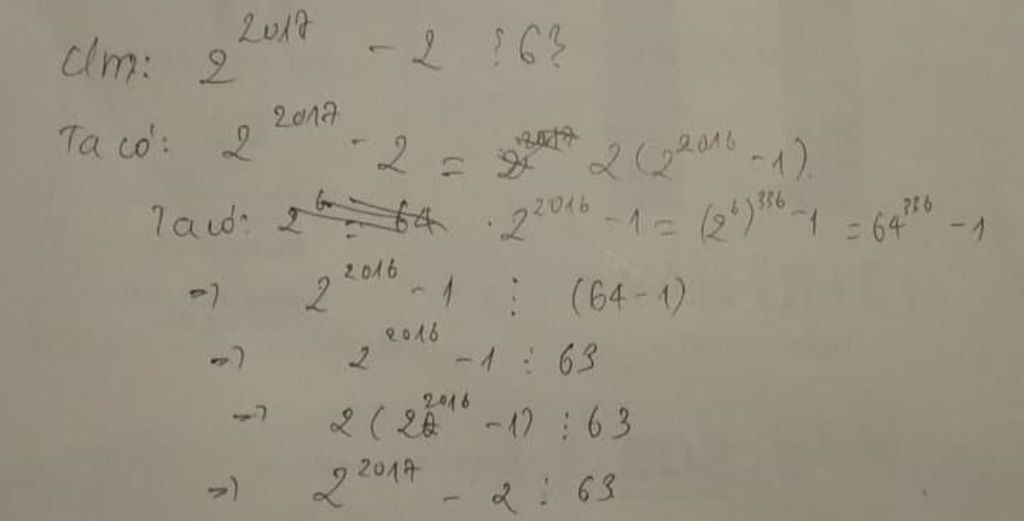 Cm: 2^2017 - 2 ⋮ 63
Ta có: 2^2017 - 2 = 2(2^2016 - 1).
Ta có: 2^6 = 64 · 2^2016 - 1 = (2^6)^336 - 1 = 64^336 - 1
=> 2^2016 - 1 ⋮ (64 - 1)
=> 2^2016 - 1 ⋮ 63
=> 2(2^2016 - 1) ⋮ 63
=> 2^2017 - 2 ⋮ 63